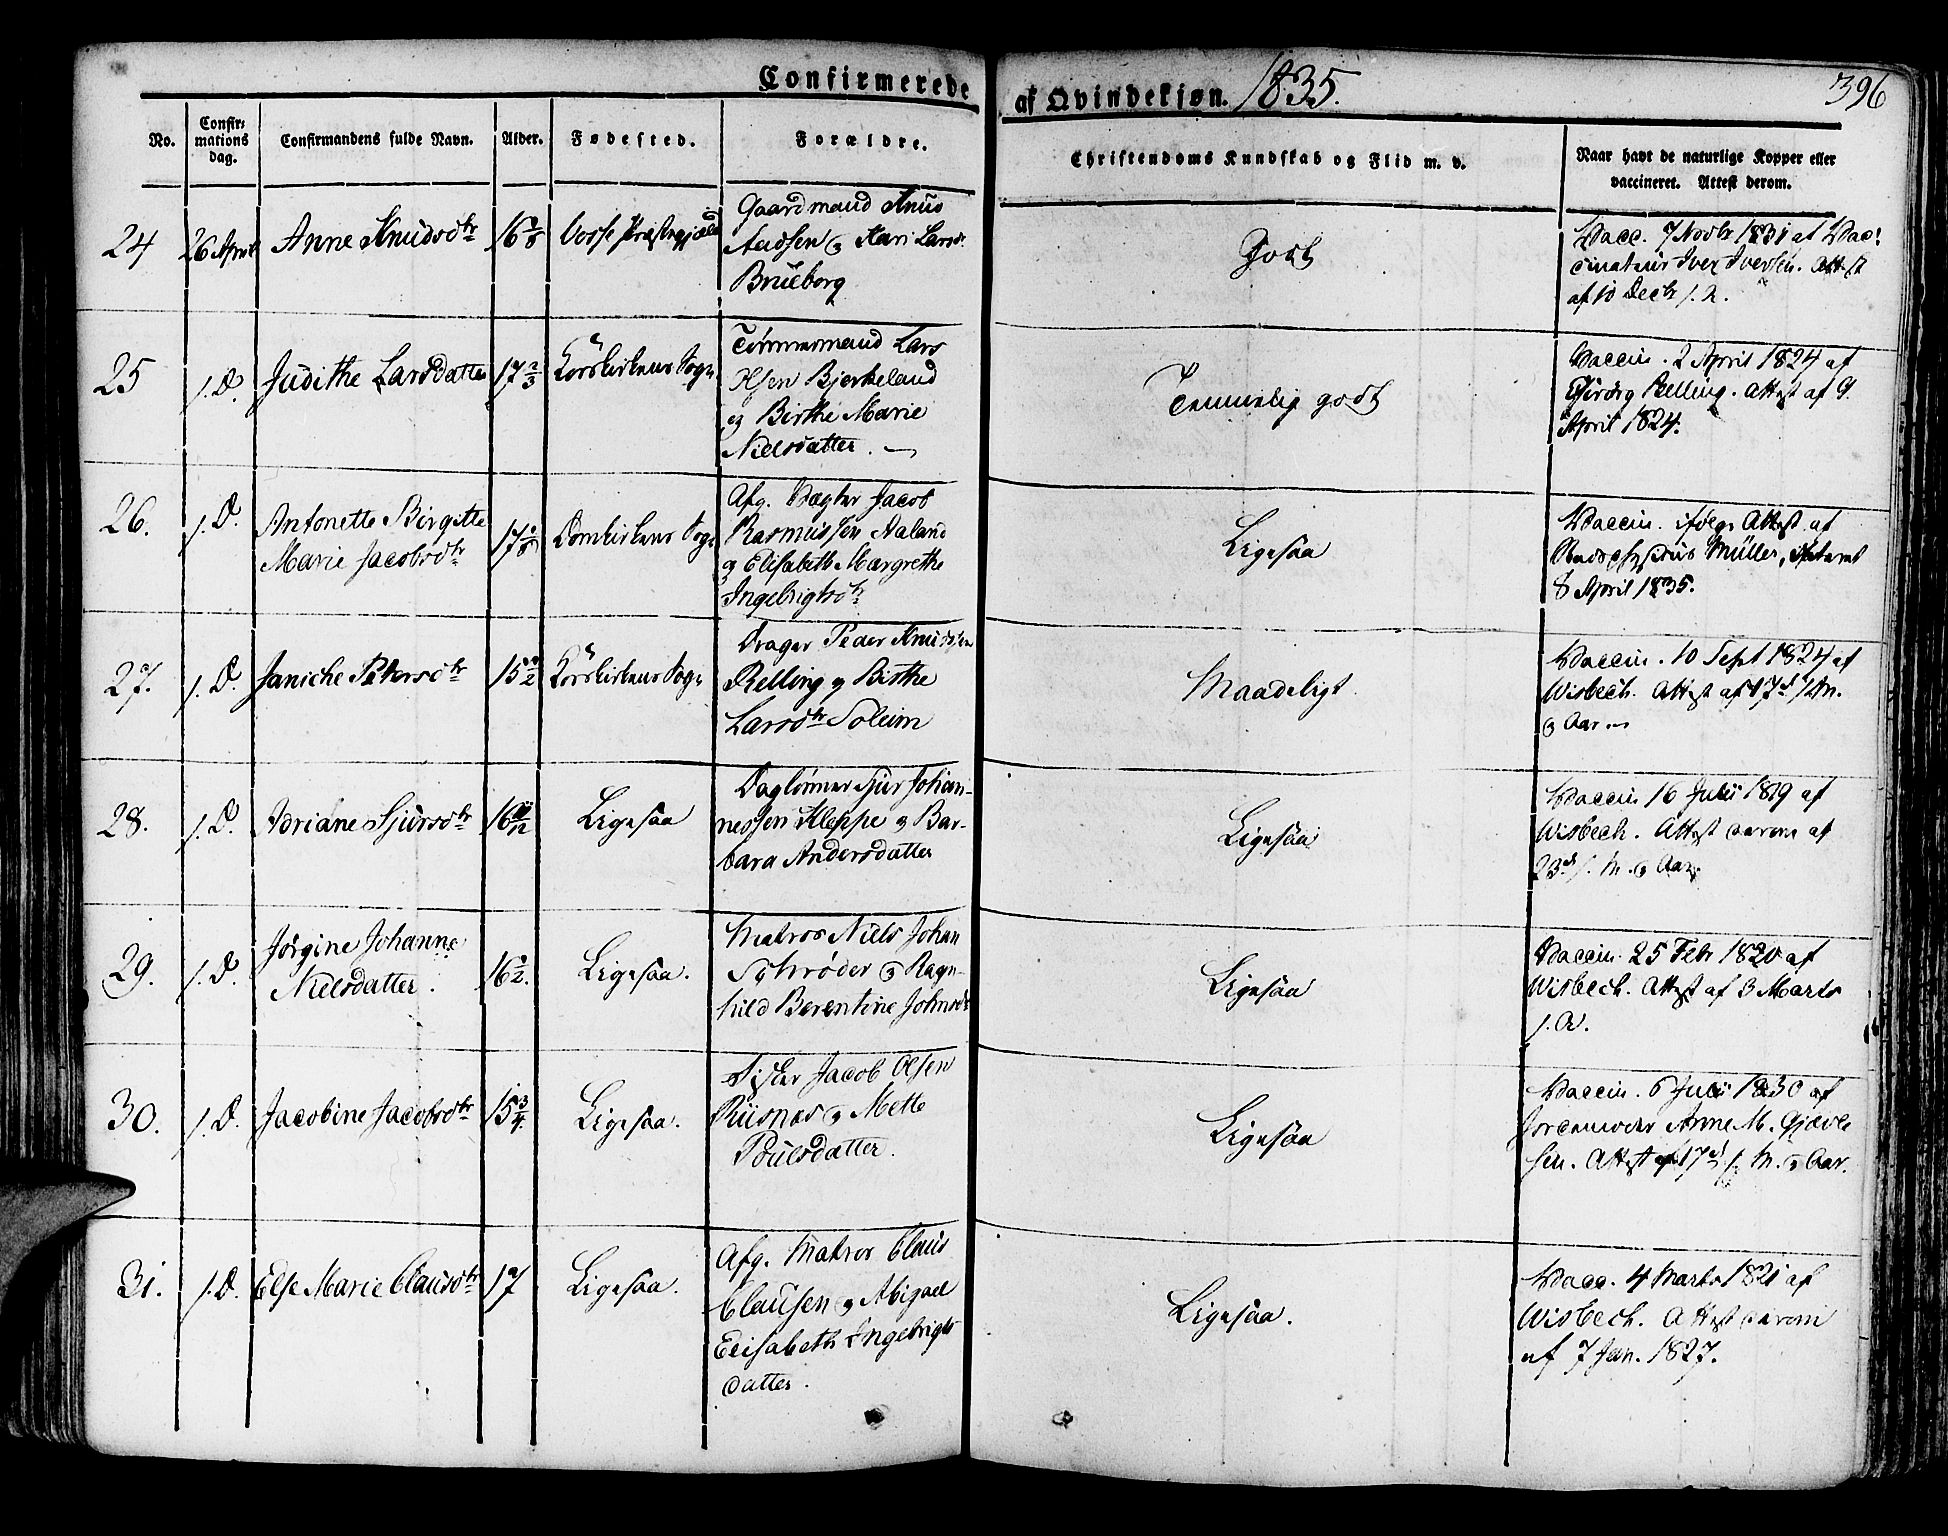 Confirmerede af Qvindekjøn. 1835.
396
No.
Confir-
mations
dag.
Confirmandens fulde Navn.
Alder.
Fødested.
Forældre.
Christendoms Kundskab og Flid m. v.
Naar havt de naturlige Kopper eller
vaccineret. Attest derom.
24
26 April
Anne Knudsdtr
16
Vosse Præstegjæld
Gaardmand Knud
og Kari Larsd.
Brüeborg
Godt
Vacc. 7 Novbr 1831 af Vac-
cinateur Iver Iversen. Attest
af 10 Decbr s. A.
25
s. D.
Judithe Larsdatter
17 2/3
Korskirkens Sogn
Tømmermand Lars
Olsen Bjerkeland
og Birthe Marie
Nielsdatter.
Temmelig godt
Vaccin. 2 April 1824 af
Belling. Attest af 9
April 1824.
26.
s. D.
Antonette Birgitte
Marie Jacobsdtr
17
Domkirkens Sogn
Afg. Vægter Jacob
Rasmussen Aaland
og Elisabeth Margrethe
Ingebrigtsdtr
Ligesaa
Vaccin. ifølge Attest af
Müller, dateret
8 April 1835.
27.
s. D.
Janiche Petersdtr
15 1/2
Korskirkens Sogn
Drager Peder Knudsen
Relling og Birthe
Larsdtr Soleim
Maadeligt
Vaccin. 10 Sept 1824 af
Wisbech. Attest af 17d s. M.
og Aar
28.
s. D.
Adriane Sjursdtr
16 11/12
Ligesaa
Daglønner Sjur Johan-
nessen Kleppe og Bar-
bara Andersdatter
Ligesaa
Vaccin 16 Julii 1819 af
Wisbech. Attest derom af
23d s. M. og Aar.
29.
s. D.
Jørgine Johanne
Nielsdatter.
16 1/2.
Ligesaa.
Matros Niels Johan
Schrøder og Ragn-
hild Berentine Johnsdr
Ligesaa
Vaccin. 25 Febr 1820 af
Wisbech. Attest af 3 Marts
s. A.
30.
s. D.
Jacobine Jacobsdtr
15 3/4.
Ligesaa.
Fisker Jacob Olsen
Riisnæs og Mette
Poulsdatter.
Ligesaa
Vaccin. 6 Julii 1830 af
Jordemoder Anne M. Gjævle
sen. Attest af 17d s. M. og Aar.
31.
s. D.
Else Marie Clausdtr
17
Ligesaa.
Afg. Matros Claus
Clausen og Abigael
Elisabeth Ingebrigts
datter.
Ligesaa.
Vacc. 4 Marts 1821 af
Wisbech. Attest derom
af 7 Jan. 1827.